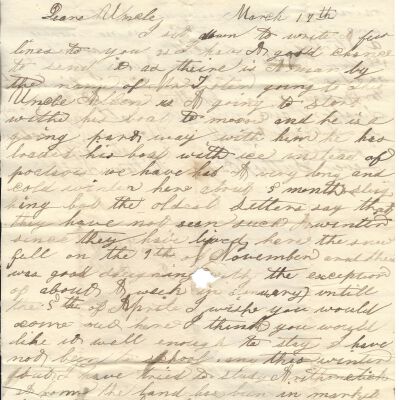 Dear Uncle March 17th
I set down to write a few
lines to you as I have A good chance
to send it as theire is A man by
the name of going to
Uncle is A going to start
withe his boat to moove and he is a
going part way with him he has
loaded his boat with ice instead of
we have had A very long and
cold winter here about 5 months sley
ing but the oldest Setters say that
they have not seen such A winter
since they have lived here the snow
fell on the 9th of November and there
was good with the exception
of about A week in untill
the 5th of Aprile I wish you would
come out here I think you would
like it well enough to stay I have
not been to school any this winter
but I have tried to study Arithmetick
at home the land has been in market